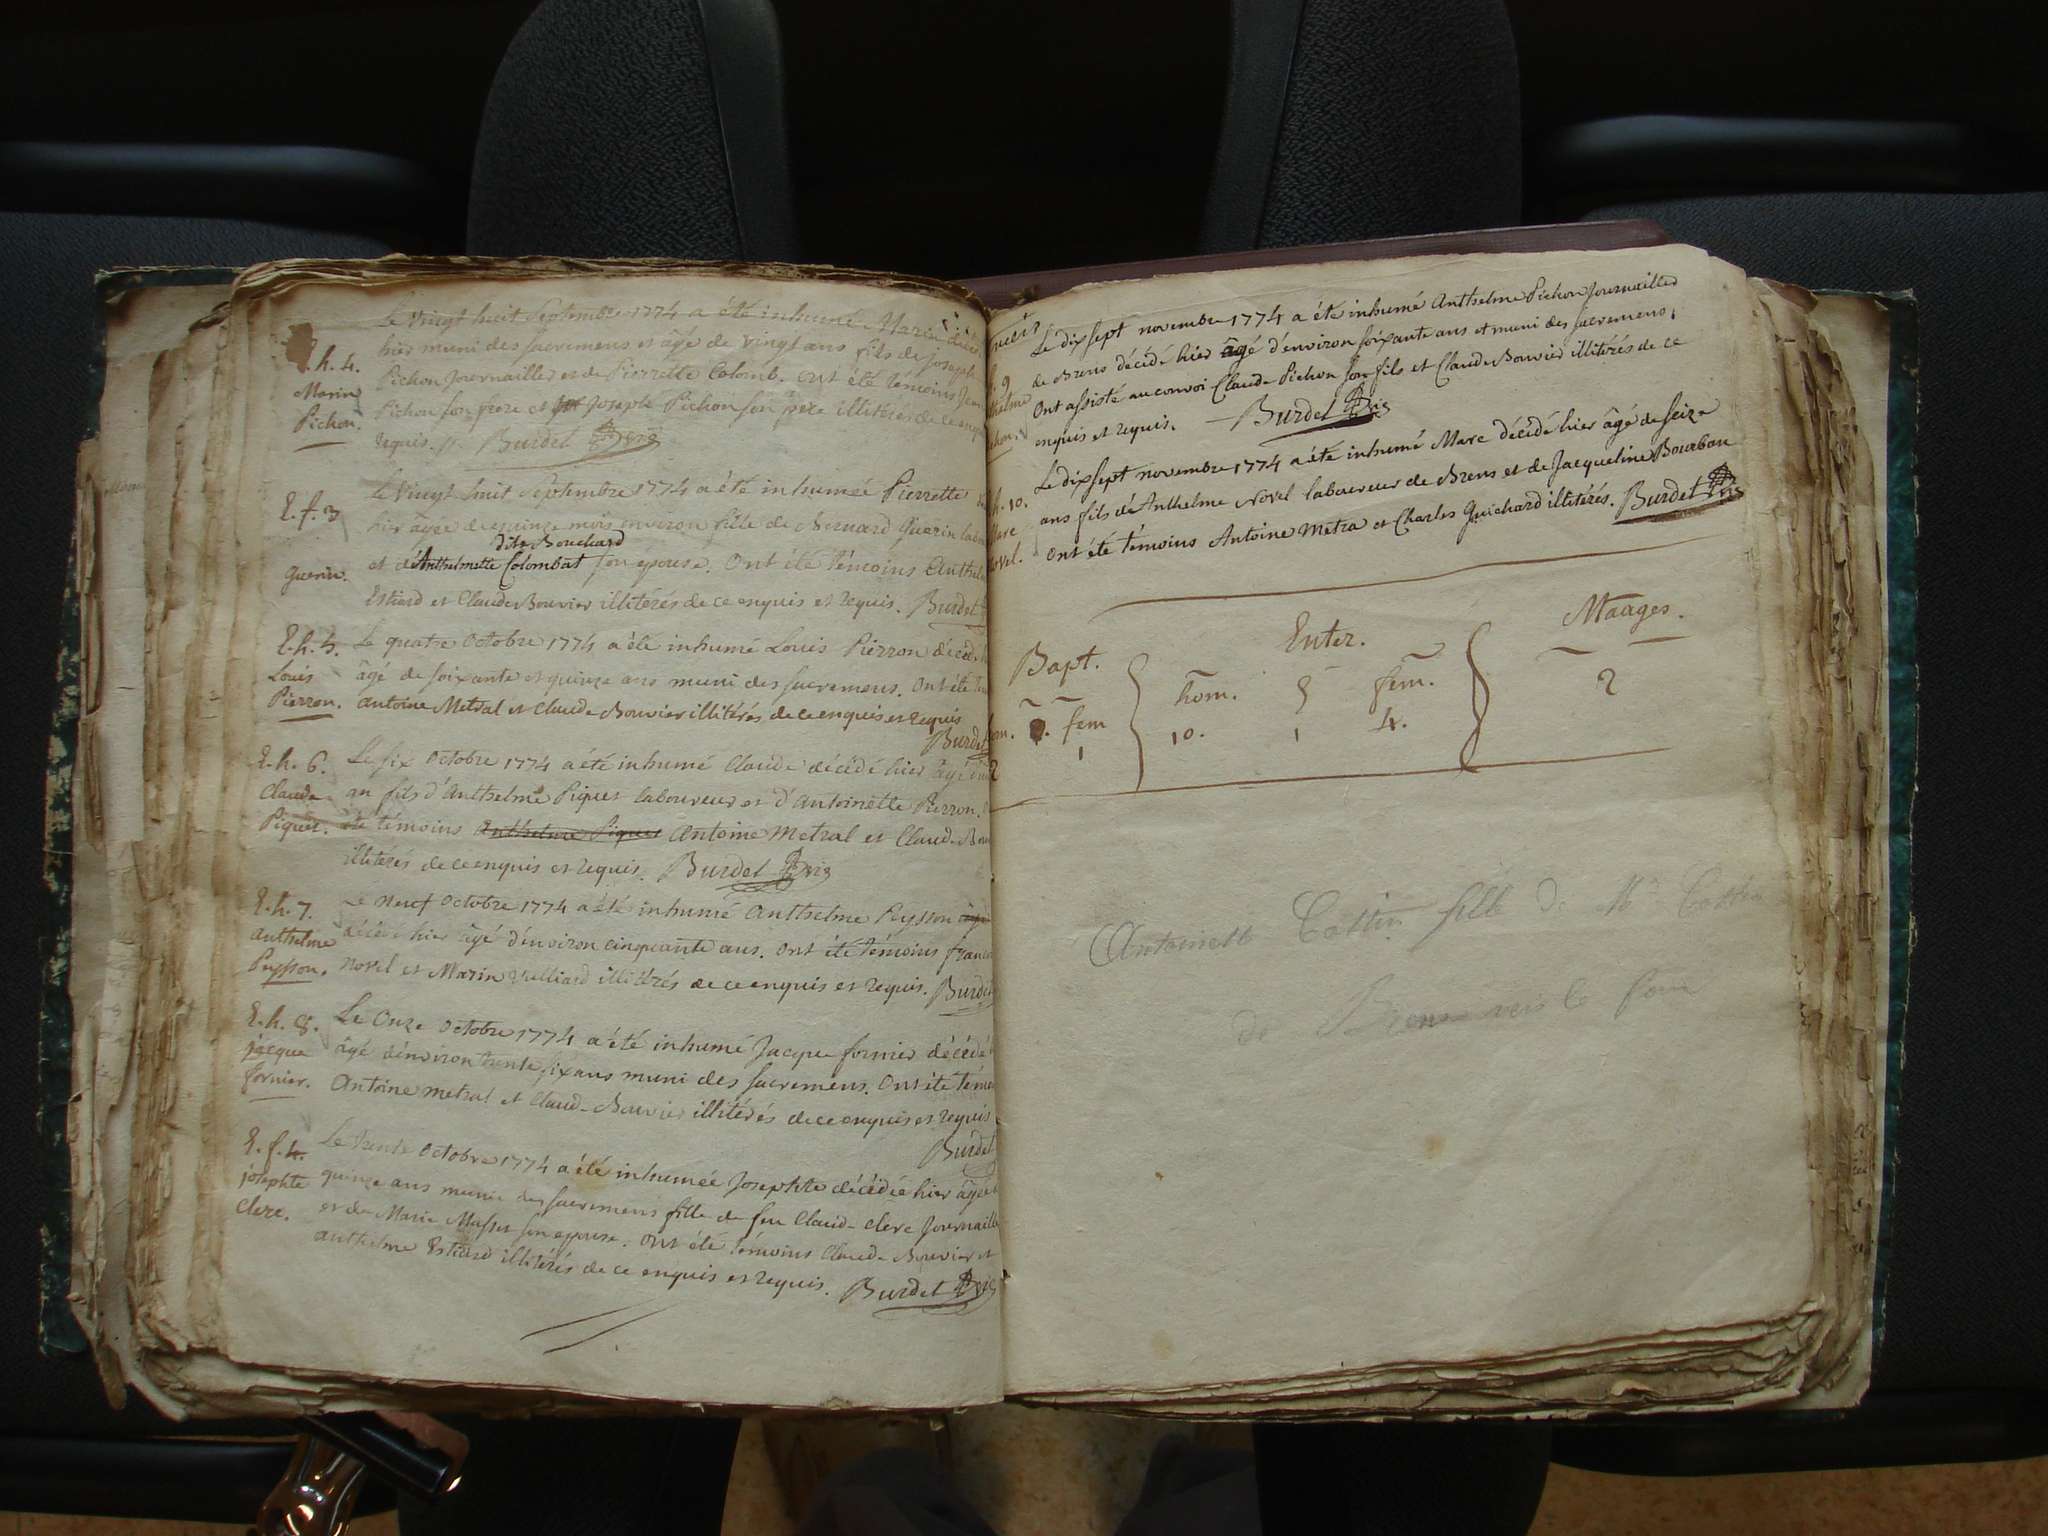 Le vingt huit Septembre 1774 a été inhumé Marin décédé
E. h. 4.
hier muni des sacremens et âgé de vingt ans fils de Joseph
Marin
Pichon Journaillier et de Pierrette Colomb. ont été témoins Jean
Pichon.
Pichon son frere et Joseph Pichon son père illitérés de ce enquis
requis. Burdet
Le vingt huit Septembre 1774 a été inhumée Pierrette
E. f. 3
hier âgée de quinze mois environ fille de Bernard Guerin
dite Bouchard
Guerin.
et de Anthelmette Colombat son epouse. Ont été témoins
Estiard et Claude Bouvier illitérés de ce enquis et requis. Burdet
E. h. 5.
Le quatre Octobre 1774 a été inhumé Louis Pierron décédé
Louis
âgé de soixante et quinze ans muni des sacremens. Ont été
Pierron.
Antoine Metral et Claude Bouvier illitérés de ce enquis et requis
Burdet
E. h. 6.
Le six Octobre 1774 a été inhumé Claude décédé hier âgé
Claude
an fils d'Anthelme Piquet laboureur et d'Antoinette Pierron.
Piquet.
été témoins Anthelme Piquet Antoine Metral et Claude
illitérés de ce enquis et requis. Burdet
E. h. 7.
Le neuf Octobre 1774 a été inhumé Anthelme Peysson
Anthelme
décédé hier âgé d'environ cinquante ans. Ont été témoins
Peysson.
Novel et Marin Vulliard illitérés de ce enquis et requis. Burdet
E. h. 8.
Le Onze Octobre 1774 a été inhumé Jacque fornier décédé
jacque
âgé d'environ trente six ans muni des sacremens. Ont été
fornier.
Antoine metral et Claude Bouvier illitérés de ce enquis et requis
Burdet
E. f. 4.
Le trente Octobre 1774 a été inhumée Josephte décédée hier âgée
josephte
quinze ans munie des sacremens fille de feu Claude clerc Journaillier
Clerc.
et de Marie Masset son epouse. Ont été témoins Claude Bouvier et
anthelme Estiard illitérés de ce enquis et requis. Burdet
Le dix sept novembre 1774 a été inhumé Anthelme Pichon Journaillier
de Brens décédé hier âgé d'environ soixante ans et muni des sacremens.
Ont assisté au convoi Claude Pichon son fils et Claude Bouvier illitérés de ce
enquis et requis. Burdet
Le dix sept novembre 1774 a été inhumé Marc décédé hier âgé de seize
h. 10.
ans fils de Anthelme Novel laboureur de Brens et de Jacqueline Bourbon
Ont été témoins Antoine Metra et Charles Guichard illitérés. Burdet
Bapt. Enter. Maages.
hom. fem. 2
fem
10. 1 4.
1
Antoinette Cottin fille de Mr Cottin
de Brens vers le four